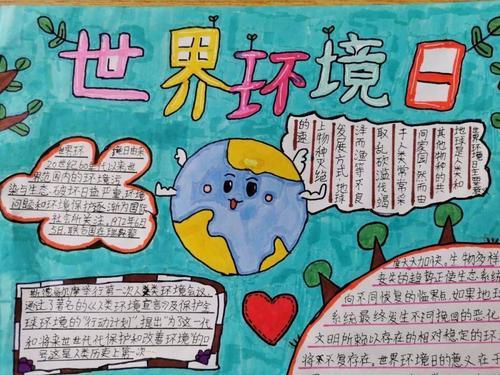 世界环境日
世界环 境日由来
20世纪60年代以来世
界范围内的环境污
染与生态 破坏日益严重环境
问题和环境保护逐渐为国际
社会所关注 1972年6月
5日
地球是人类和
其他物种的共
同家园 然而由
于人类常常采
取乱砍滥伐竭
泽而渔等不良
发展方式 地球
上物种灭绝
的速
斯德哥尔摩举行第一次人类环境会议
通过了著名的《人类环境宣言》及保护全
球环境的"行动计划"提出"为了这一代
和将来世世代代保护和改善环境"的口
号这是人类历史上第一次
度大大加快,生物多样
丧失的趋势正使生态系统
向不同恢复的临界后如果地球
系统最终发生不可挽回的恶化
文明所赖以存在的相对稳定的环
将不复存在。世界环境日的意义在于